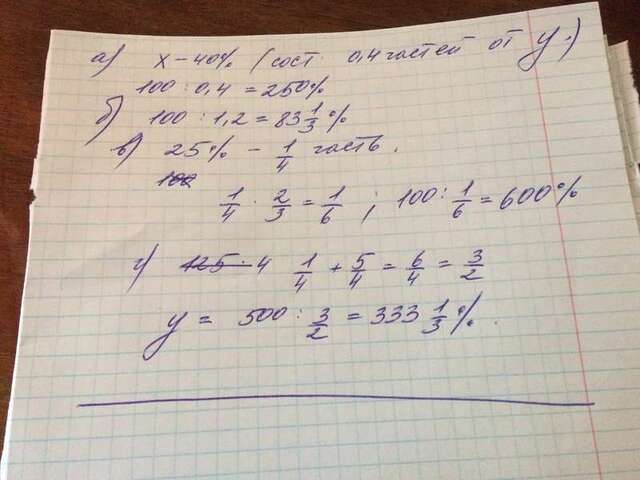 а) x – 40% (сост. 0,4 части от y.)
100 : 0,4 = 250%
б) 100 : 1,2 = 83 1/3 %
в) 25% – 1/4 часть.
1/4 · 2/3 = 1/6 , 100 : 1/6 = 600%
1/4 + 5/4 = 6/4 = 3/2
y = 500 : 3/2 = 333 1/3 %.